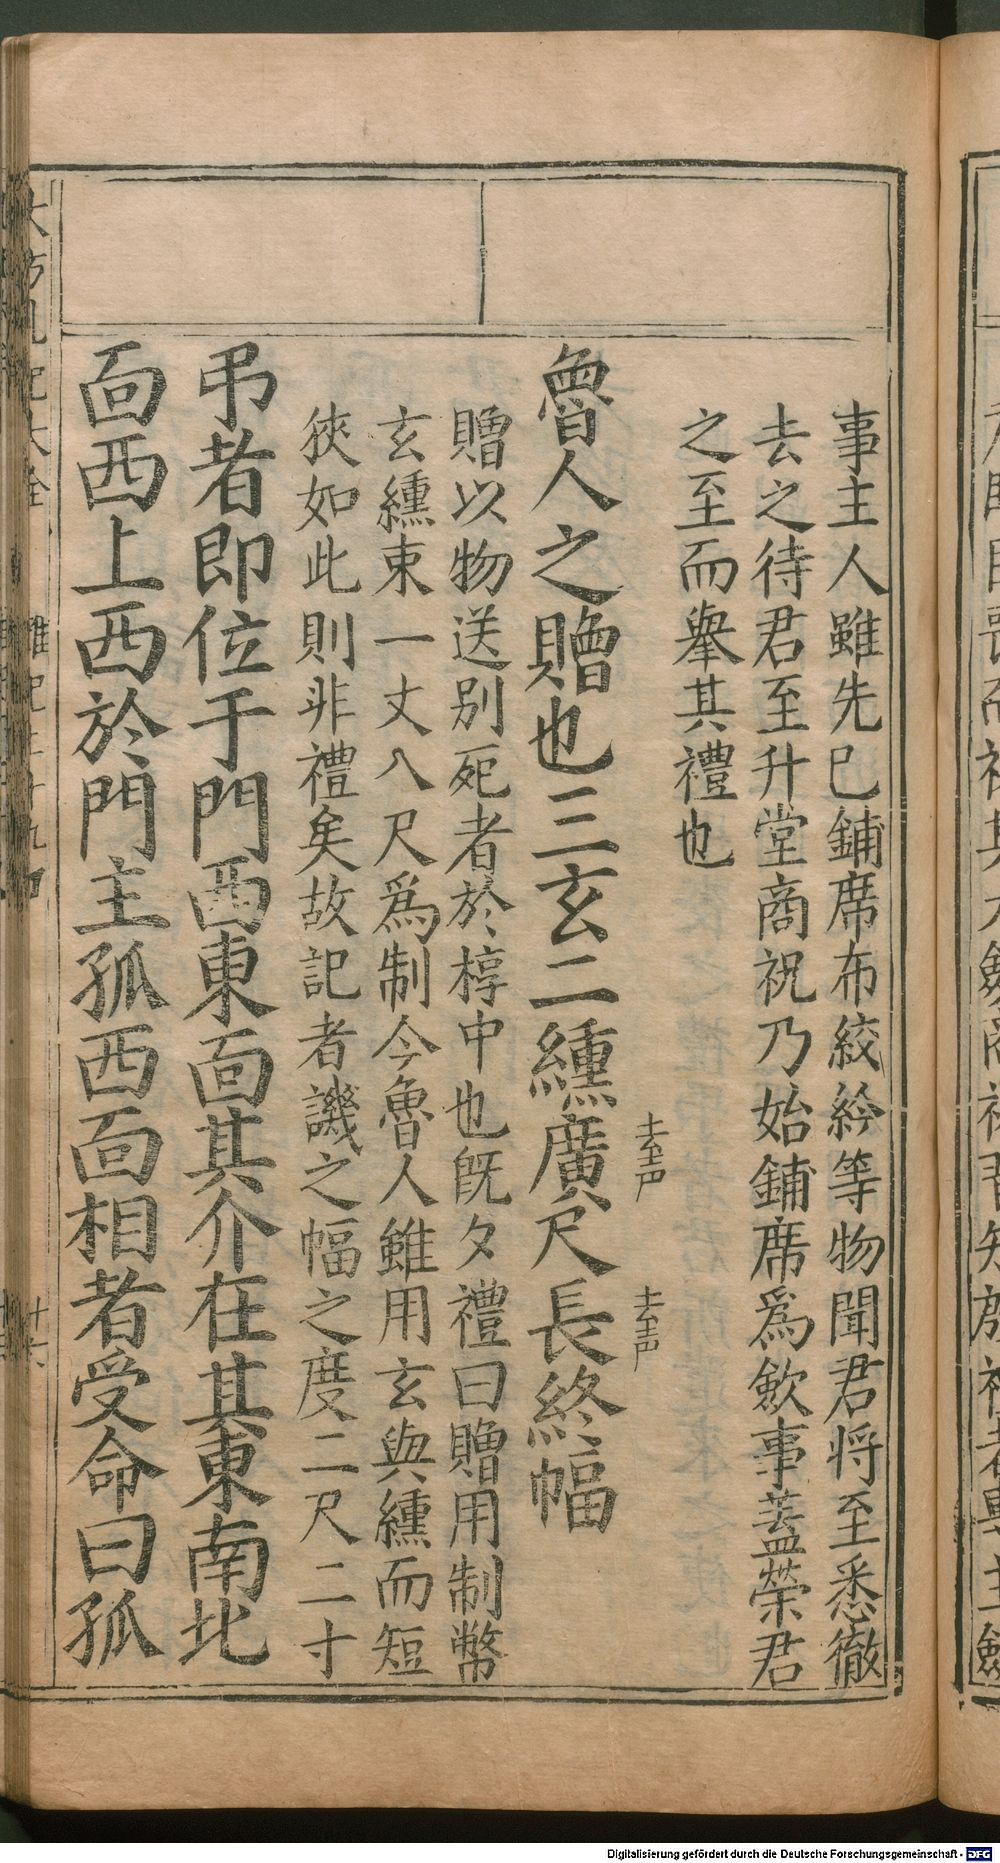 事主人雖先已鋪席布絞紟等物聞君将至悉徹
去之待君至升堂商祝乃始鋪席爲歛事蓋榮君
之至而舉其禮也
魯人之贈也三玄二纁廣尺長終幅
去声
去声
贈以物送别死者於椁中也旣夕禮曰贈用制幣
玄纁束一丈八尺爲制今魯人雖用玄與纁而短
狹如此則非禮矣故記者譏之幅之度二尺二寸
弔者即位于門西東面其介在其東南北
面西上西於門主孤西面相者受命曰孤
十六
Digitalisierung gefördert durch die Deutsche Forschungsgemeinschaft - DFG